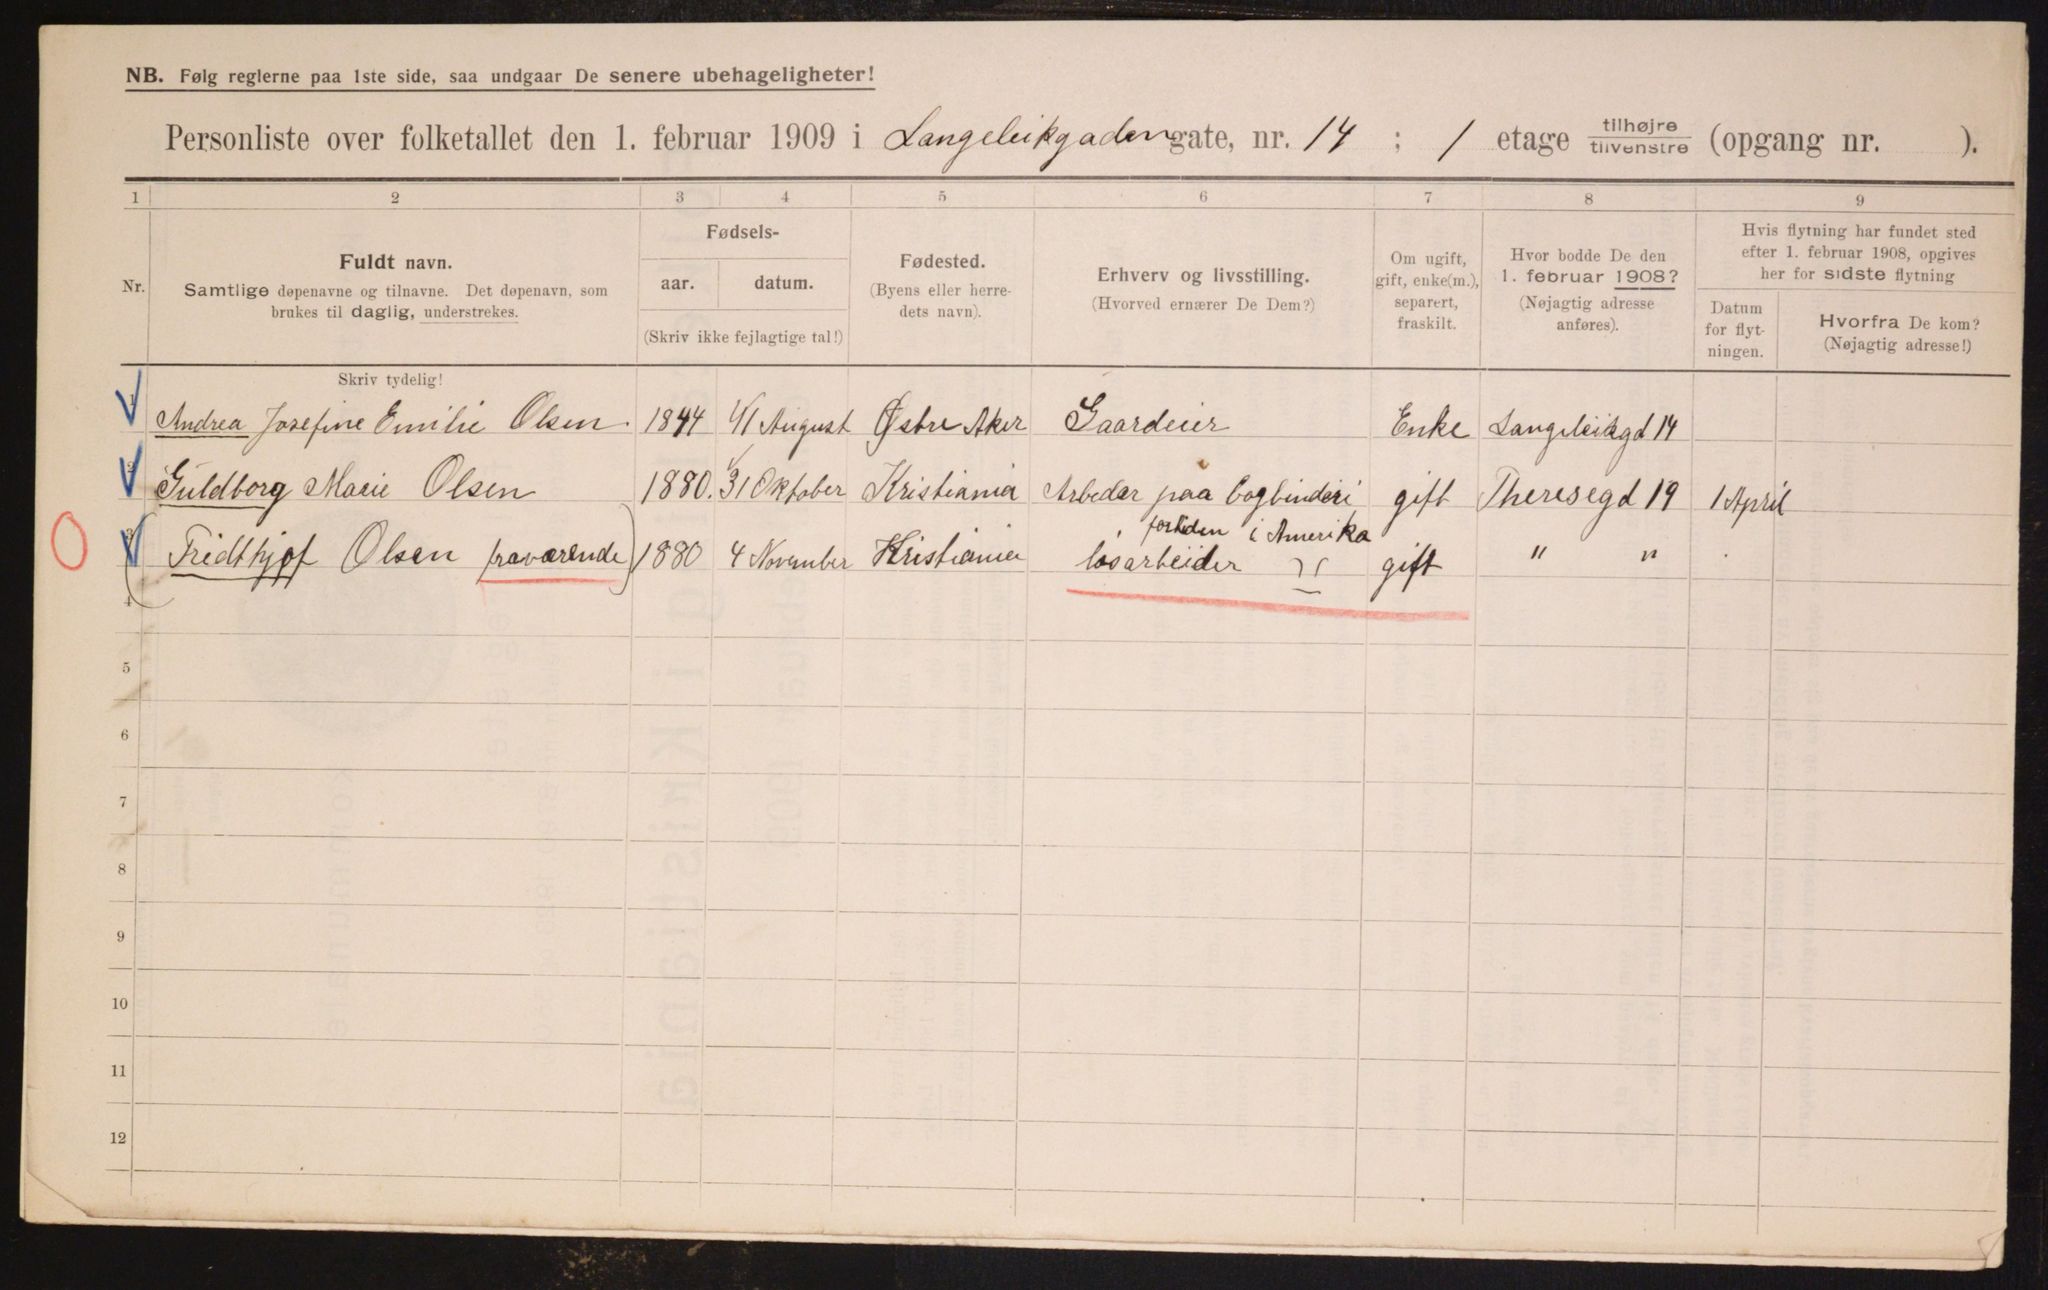 NB. Følg reglerne paa 1ste side, saa undgaar De senere ubehageligheter!
Personliste over folketallet den 1. februar 1909 i Langeleikgaden gate, nr. 14 ; 1 etage tilhøjre tilvenstre (opgang nr. ).
1 2 3 4 5 6 7 8 9
Nr.
Fuldt navn.
Samtlige døpenavne og tilnavne. Det døpenavn, som
brukes til daglig, understrekes.
Fødsels-
aar. datum.
(Skriv ikke fejlagtige tal!)
Fødested.
(Byens eller herre-
dets navn).
Erhverv og livsstilling.
(Hvorved ernærer De Dem?)
Om ugift,
gift, enke(m.),
separert,
fraskilt.
Hvor bodde De den
1. februar 1908?
(Nøjagtig adresse
anføres).
Hvis flytning har fundet sted
efter 1. februar 1908, opgives
her for sidste flytning
Datum
for flyt-
ningen.
Hvorfra De kom?
(Nøjagtig adresse!)
Skriv tydelig!
1 Andrea Josefine Emilie Olsen 1844 August Østre Aker Gaardeier Enke Langeleikgd 14
2 Guldborg Marie Olsen 1880. 31 Oktober Kristiania Arbeder paa bogbinderi gift Theresegd 19 1 April
fortiden i Amerika
3 (Fridthjof Olsen fraværende) 1880 4 November Kristiania løsarbeider gift " "
4
5
6
7
8
9
10
11
12